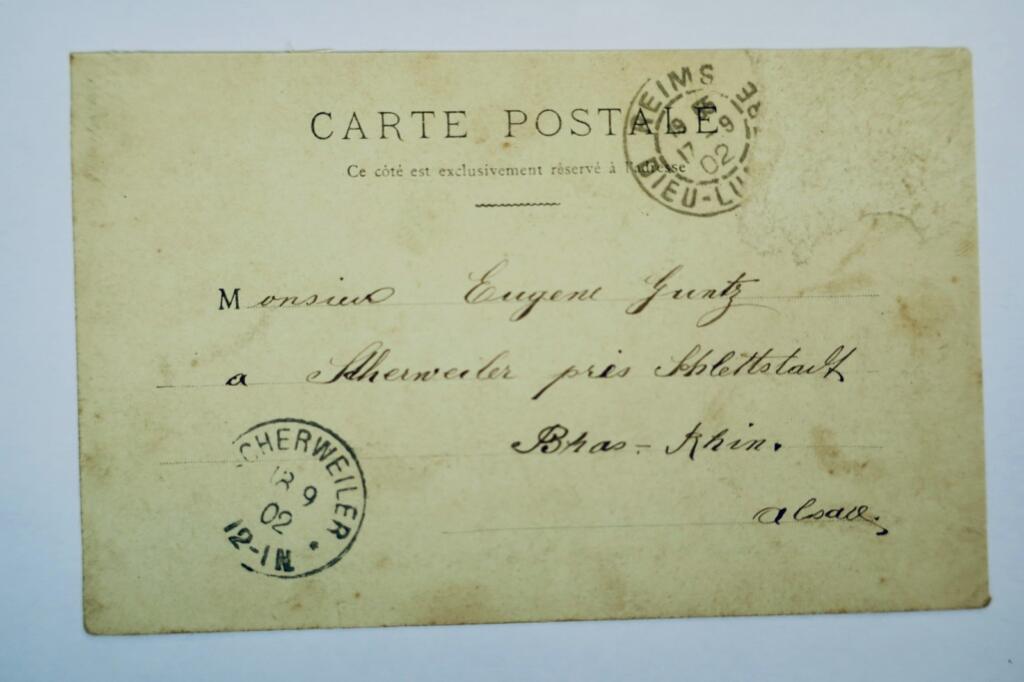 CARTE POSTALE
Ce côté est exclusivement réservé à l'adresse
REIMS
17 9
02
DIEU-LU
Monsieur Eugene Guntz
a Scherweiler près Schlettstadt
Bhas-Rhin.
alsace.
CHERWEILER
18 9
02
12-1N